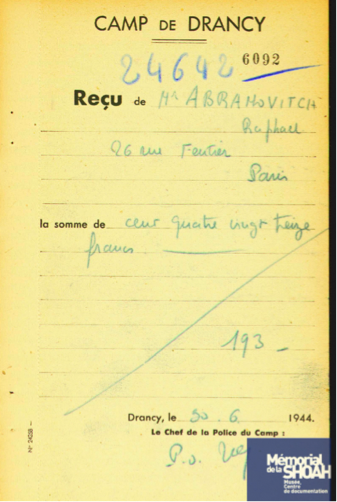 CAMP DE DRANCY
24642 6092
Reçu de Mr ABRAMOVITCH
Raphael
26 rue Feutrier
Paris
la somme de cent quatre vingt treize
francs
193 —
Drancy, le 30.6 1944.
Le Chef de la Police du Camp :
P.o.
Mémorial
de la SHOAH
Musée,
Centre
de documentation